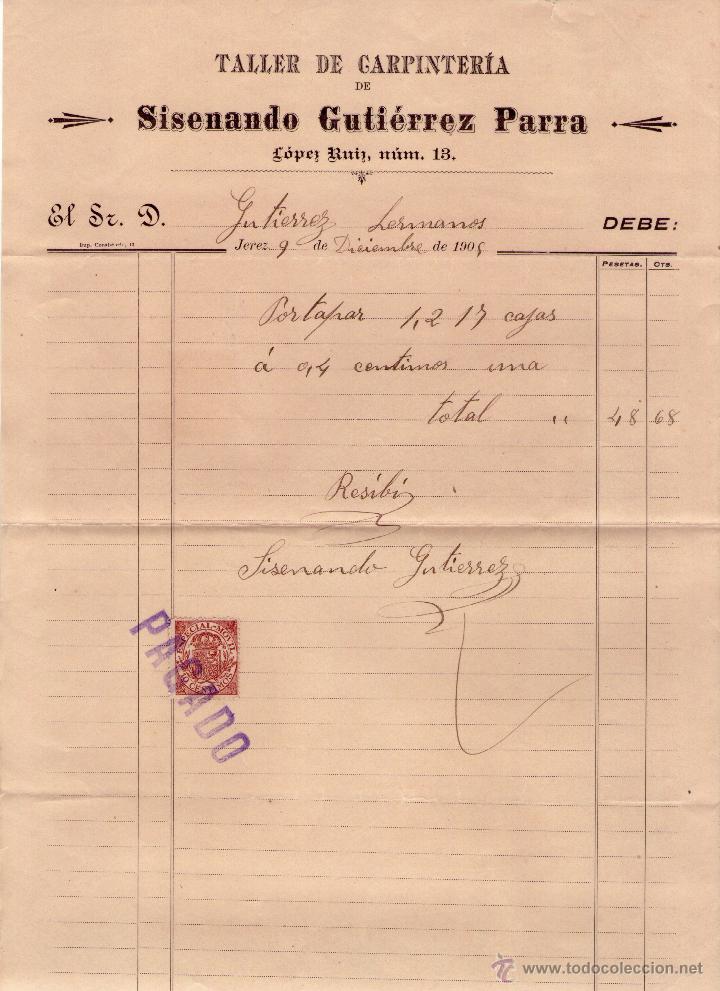 TALLER DE CARPINTERÍA
DE
Sisenando Gutiérrez Parra
López Ruiz, núm. 13.
El Sr. D. Gutierrez Lermanos DEBE:
Jerez 9 de Diciembre de 190
PESETAS. CTS.
Portapar 1,217 cajas
á 0,4 centimos una
total " 48 68
Resibi
Sisenando Gutierrez
ESPECIAL-MOVIL
10 CENTIMOS
PAGADO
www.todocoleccion.net